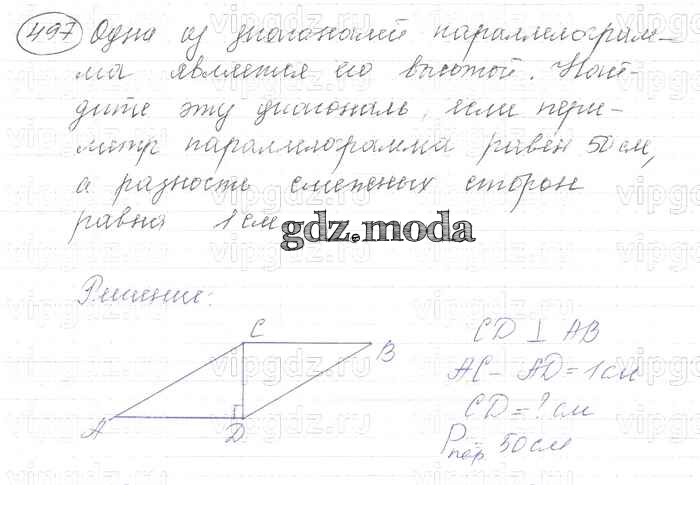 497 Одна из диагоналей параллелограм-
ма является его высотой. Най-
дите эту диагональ, если пери-
метр параллелограмма равен 50 см,
а разность смежных сторон
равна 1 см
gdz.moda
Решение:
C
B
A
D
CD ⊥ AB
AC - AD = 1 см
CD = ? см
Pпер. = 50 см